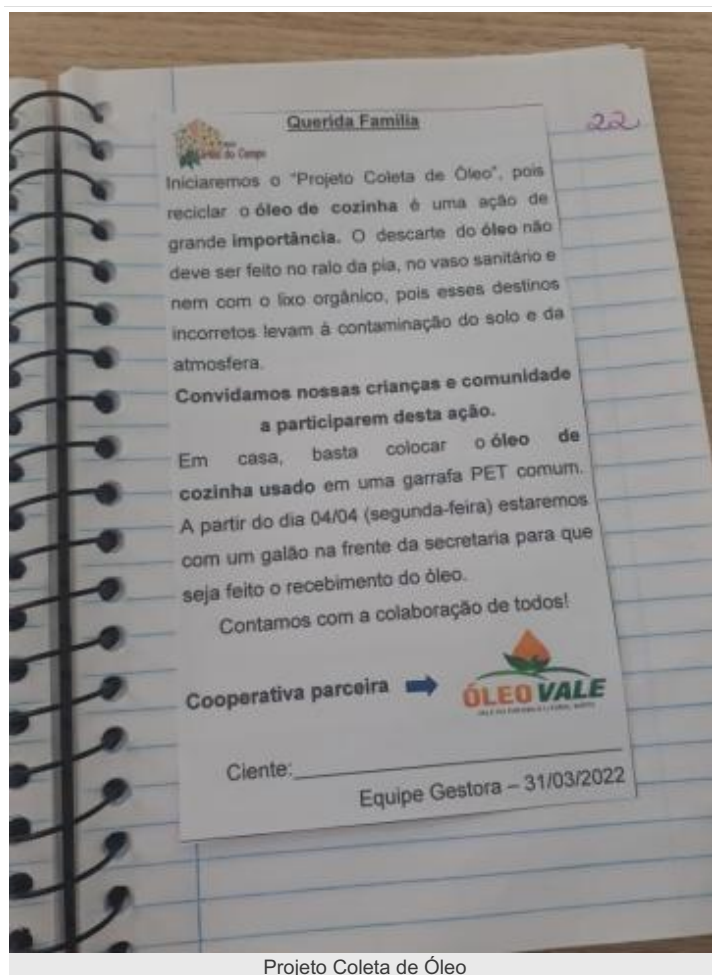 Querida Família
22
do Campo
Iniciaremos o "Projeto Coleta de Óleo", pois
reciclar o óleo de cozinha é uma ação de
grande importância. O descarte do óleo não
deve ser feito no ralo da pia, no vaso sanitário e
nem com o lixo orgânico, pois esses destinos
incorretos levam à contaminação do solo e da
atmosfera.
Convidamos nossas crianças e comunidade
a participarem desta ação.
Em casa, basta colocar o óleo de
cozinha usado em uma garrafa PET comum.
A partir do dia 04/04 (segunda-feira) estaremos
com um galão na frente da secretaria para que
seja feito o recebimento do óleo.
Contamos com a colaboração de todos!
Cooperativa parceira
ÓLEO VALE
Ciente:
Equipe Gestora – 31/03/2022
Projeto Coleta de Óleo